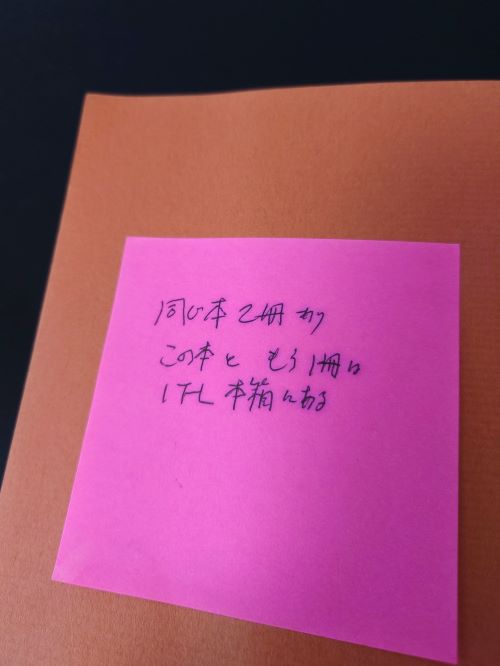 同じ本2冊あり
この本と もう1冊は
1FL 本箱にある